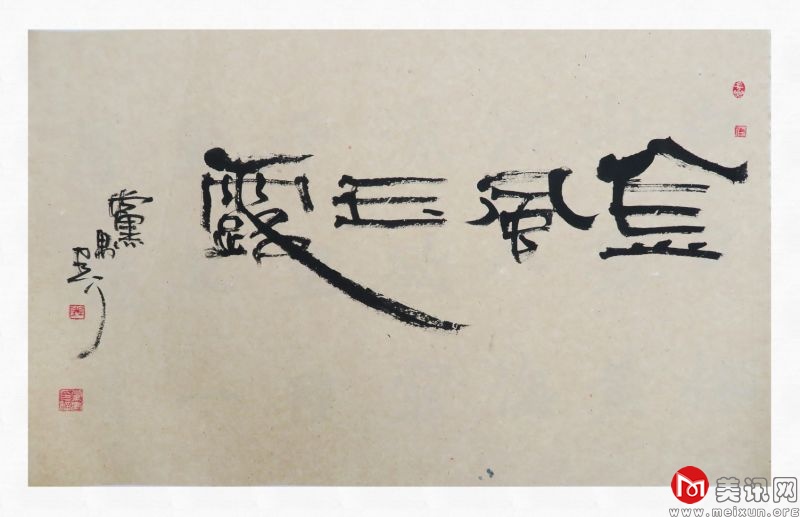 金風玉露
黨
美讯网
www.meixun.org